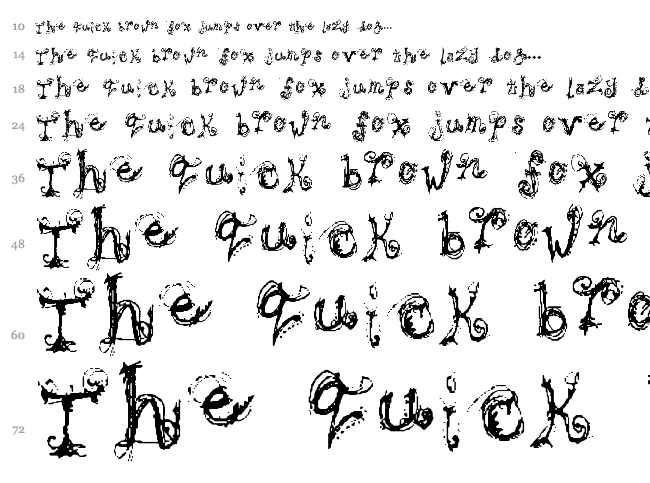 10 The quick brown fox jumps over the lazy dog...
14 The quick brown fox jumps over the lazy dog...
18 The quick brown fox jumps over the lazy d
24 The quick brown fox jumps over
36 The quick brown fox j
48 The quick brown
60 The quick bro
72 The quick